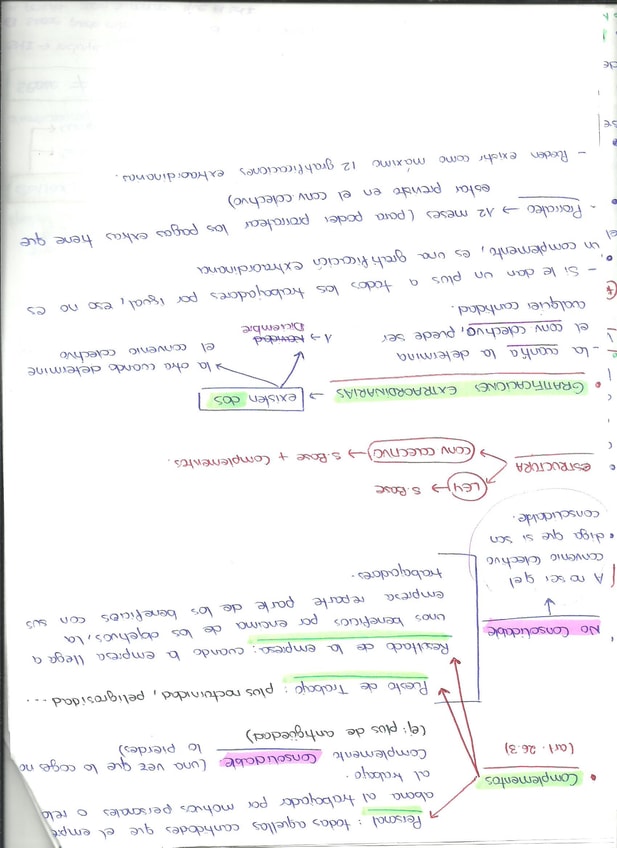 • Complementos
(art. 26.3)
Personal: todas aquellas cantidades que el
abona al trabajador por motivos personales o
al trabajo.
Complemento Consolidable. (una vez que lo coges no
lo pierdes)
(ej: plus de antigüedad)
Puesto de Trabajo: plus nocturnidad, peligrosidad...
Resultado de la empresa: cuando la empresa llega a
unos beneficios por encima de los objetivos, la
empresa reparte parte de los beneficios con sus
trabajadores.
No Consolidable
A no ser q el
convenio colectivo
diga que si son
consolidable.
• ESTRUCTURA
LEY → S. Base
CONV COLECTIVO → S. Base + Complementos.
• GRATIFICACIONES EXTRAORDINARIAS → existen dos
1 → Navidad
Diciembre
la otra cuando determine
el convenio colectivo
- La cuantía la determina
el conv colectivo, puede ser
cualquier cantidad.
- Si le dan un plus a todos los trabajadores por igual, eso no es
un complemento, es una gratificación extraordinaria
- Prorrateo → 12 meses (para poder prorratear las pagas extras tiene que
estar previsto en el conv colectivo)
- Pueden existir como máximo 12 gratificaciones extraordinarias.